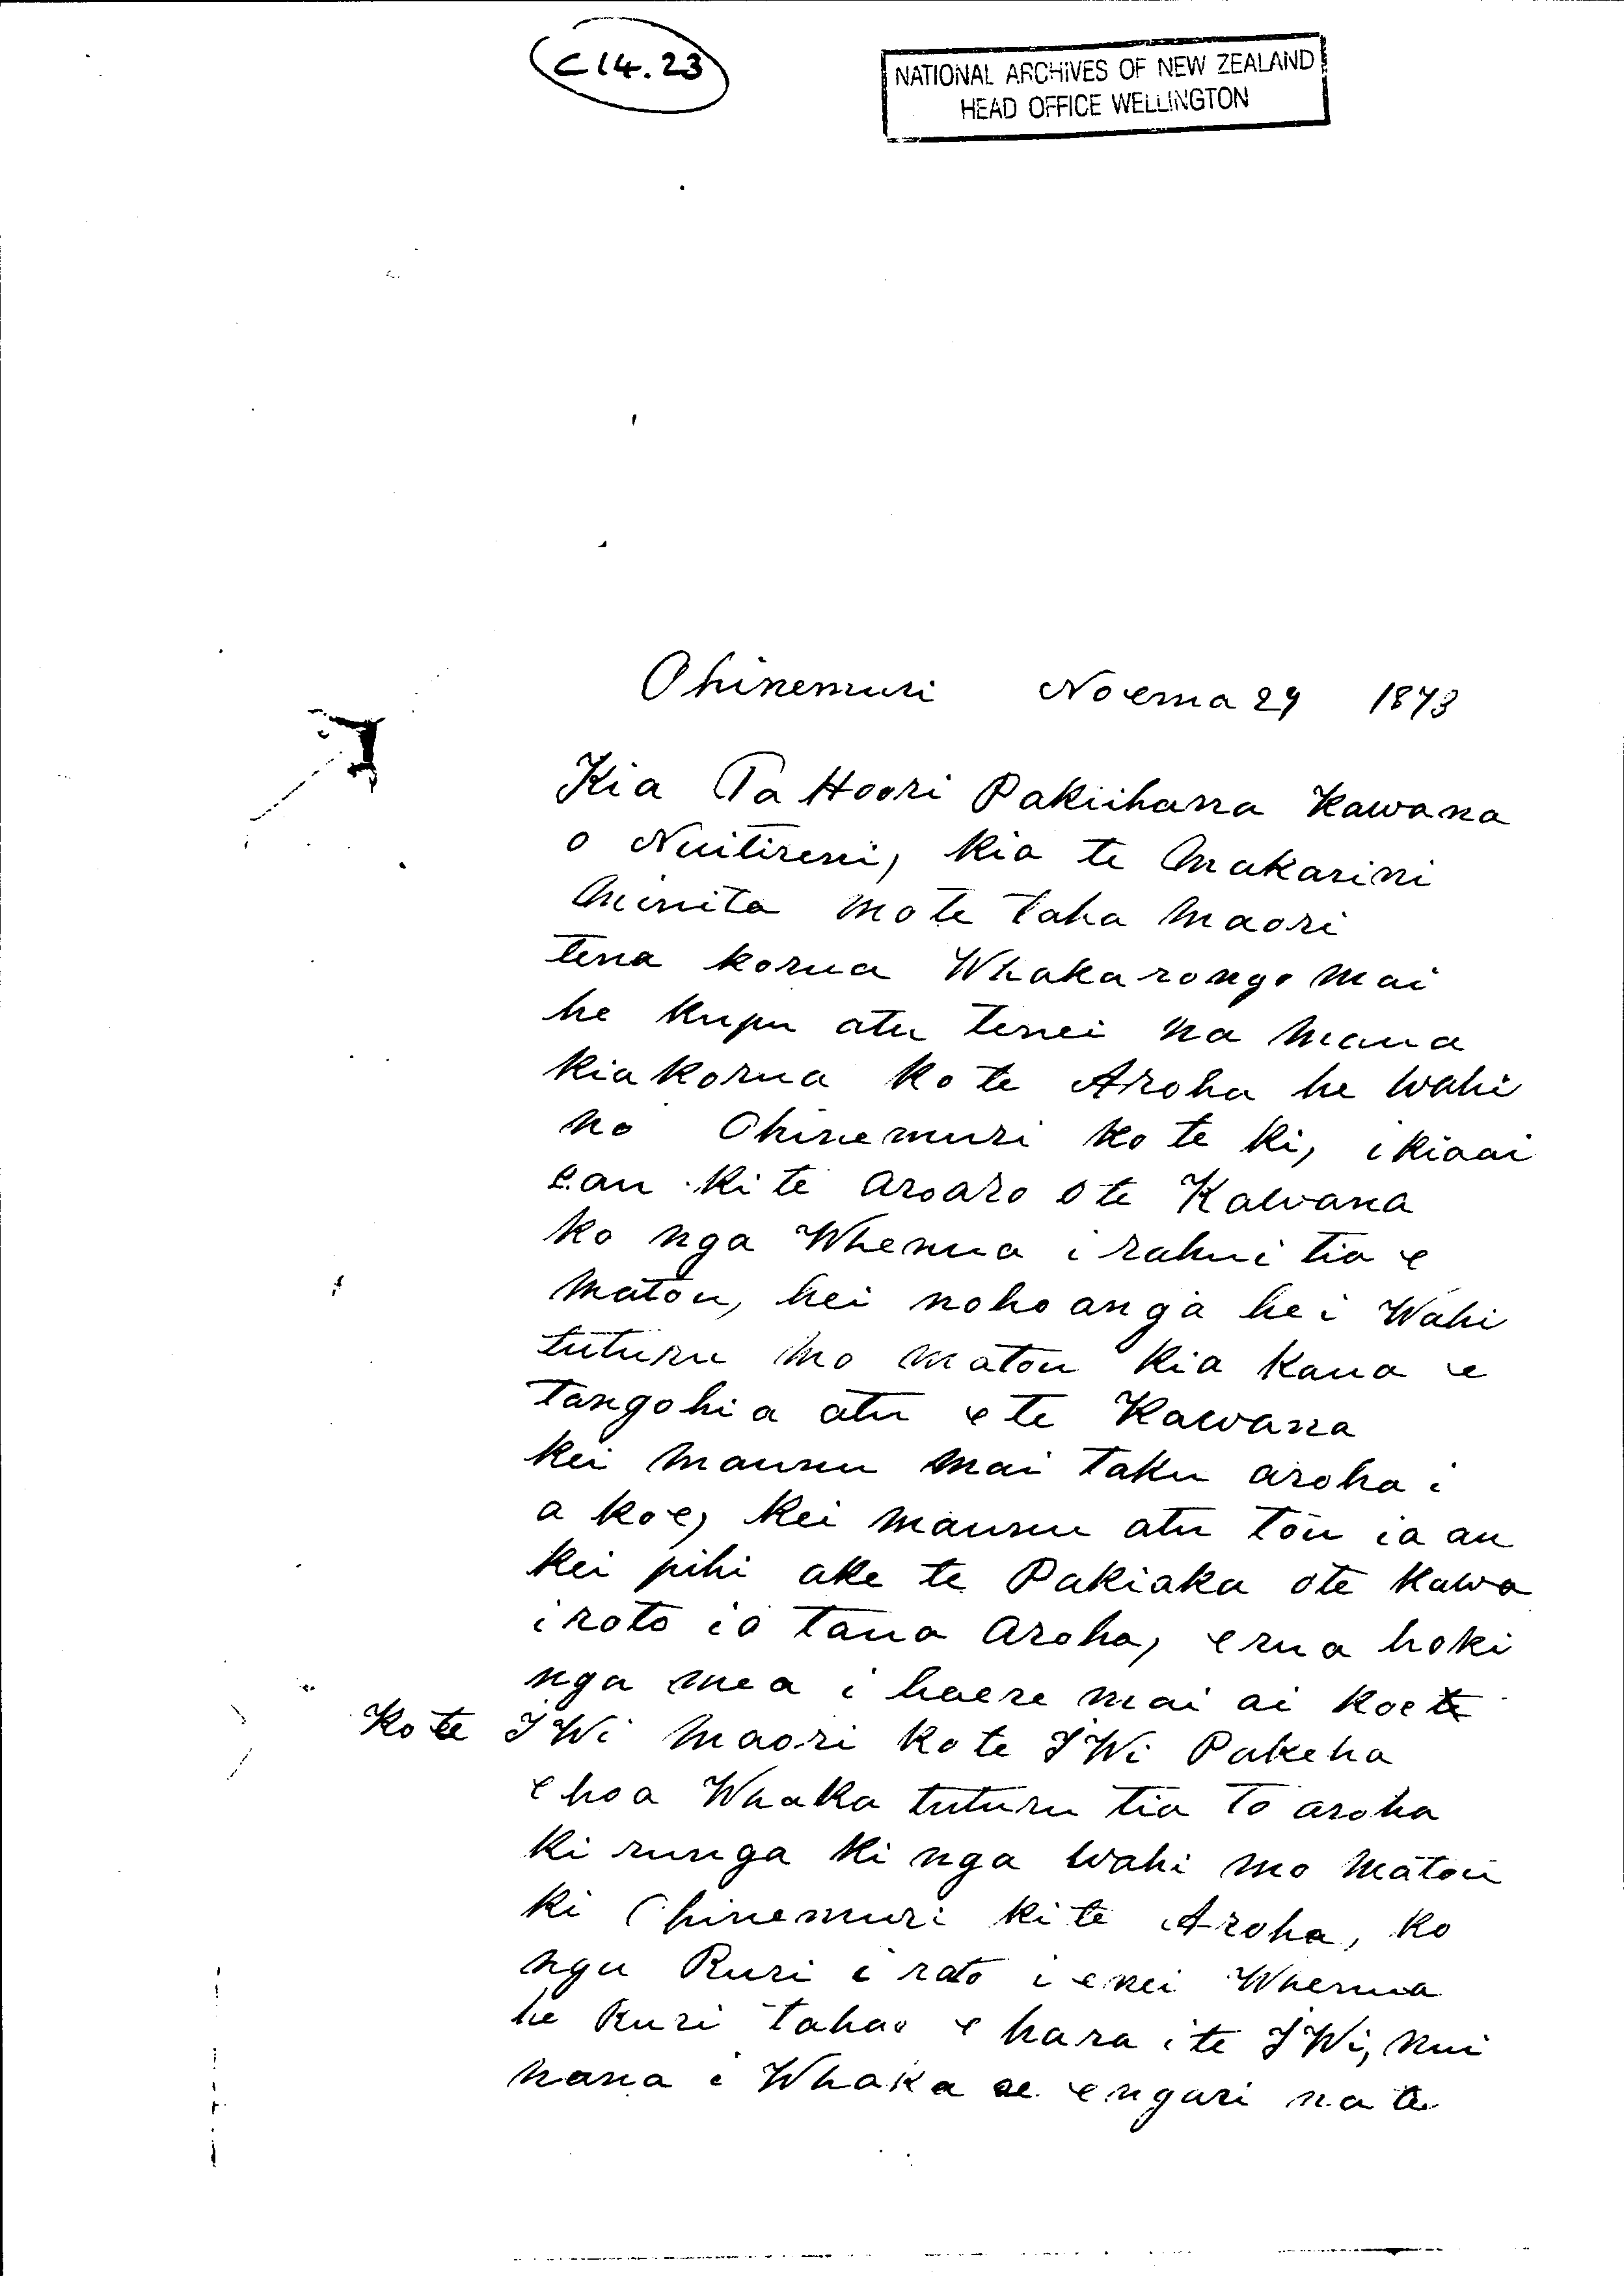 C14.23
NATIONAL ARCHIVES OF NEW ZEALAND
HEAD OFFICE WELLINGTON
Ohinemuri Noema 29 1873
Kia Ta Hoori Pakiihana Kawana
o Nuitireni, kia te Makarini
Minita mo te taha Maori
tena korua Whakarongo mai
he kupu atu tenei na maua
kiakorua ko te Aroha he wahi
no Ohinemuri ko te ki, i kiaai
e au ki te aroaro o te Kawana
ko nga Whenua i rahui tia e
matou, hei nohoanga hei Wahi
tuturu mo matou kia kaua e
tangohia atu e te Kawana
kei maunu mai taku aroha i
a koe, kei maunu atu tou ia au
kei pihi ake te Pakiaka ote kawa
i roto ia taua aroha, erua hoki
nga mea i haere mai ai koe
Ko te IWi Maori ko te IWi Pakeha
e hoa Whaka tuturu tia To aroha
ki runga ki nga wahi mo matou
ki Ohinemuri ki te Aroha, ko
nga Ruri i roto i enei Whenua
he Ruri tahae e hara i te IWi, nui
nana i Whaka ae engari na te